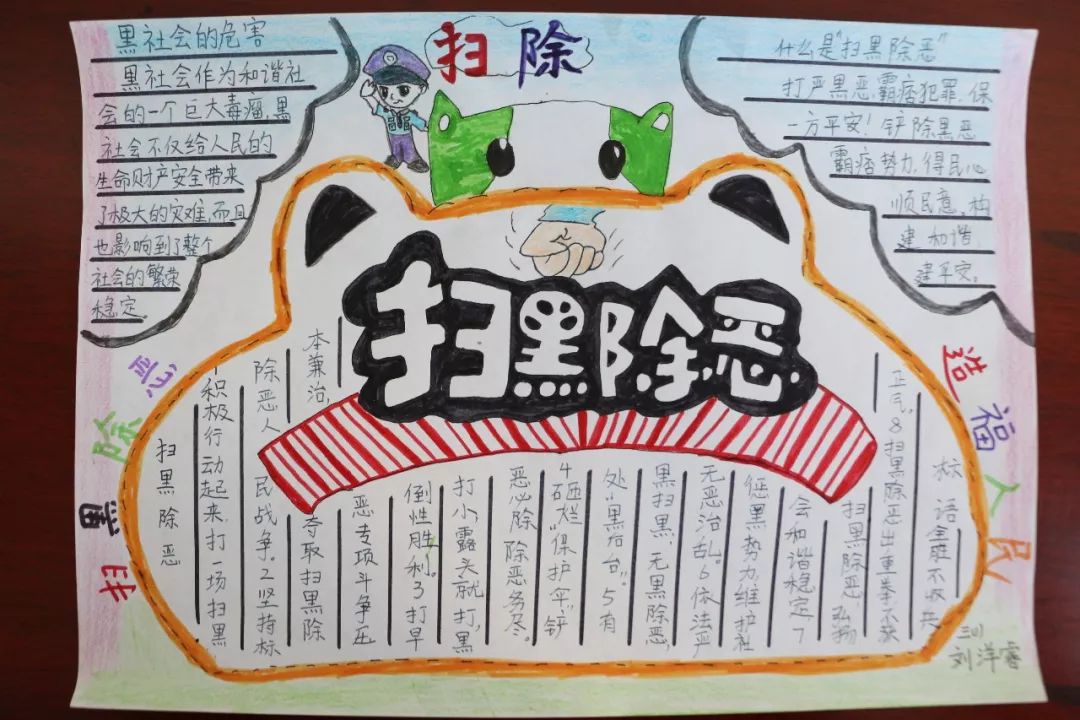 扫除
黑社会的危害
黑社会作为和谐社
会的一个巨大毒瘤,黑
社会不仅给人民的
生命财产安全带来
了极大的灾难,而且
也影响到了整个
社会的繁荣
稳定.
什么是"扫黑除恶"
打严黑恶,霸痞犯罪,保
一方平安!铲除黑恶
霸痞势力,得民心
顺民意。构
建和谐,
建平安。
扫黑除恶
扫黑除恶
造福人民
扫黑除恶
积极行动起来,打一场扫黑
除恶人民战争。2坚持标
本兼治,夺取扫黑除
恶专项斗争压
倒性胜利。3打早
打小,露头就打,黑
恶必除 除恶务尽。
4砸烂"保护伞"铲
处"黑后台"。5有
黑扫黑,无黑除恶,
无恶治乱。6依法严
惩黑势力,维护社
会和谐稳定,7
扫黑除恶,弘扬
正气。8扫黑除恶出重拳不获
全胜不收兵
标语
三(1)
刘洋睿